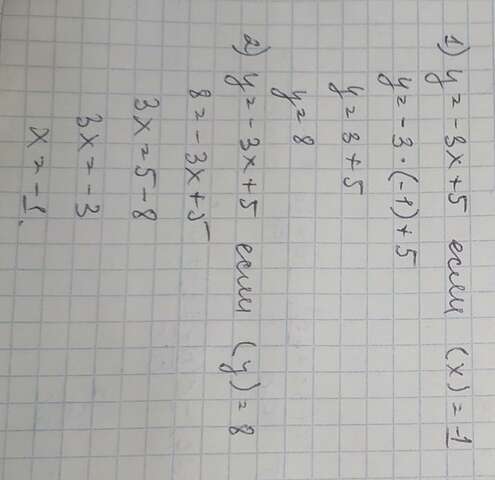 1) y = -3x + 5 если (x) = -1
y = -3 · (-1) + 5
y = 3 + 5
y = 8
2) y = -3x + 5 если (y) = 8
8 = -3x + 5
3x = 5 - 8
3x = -3
x = -1.